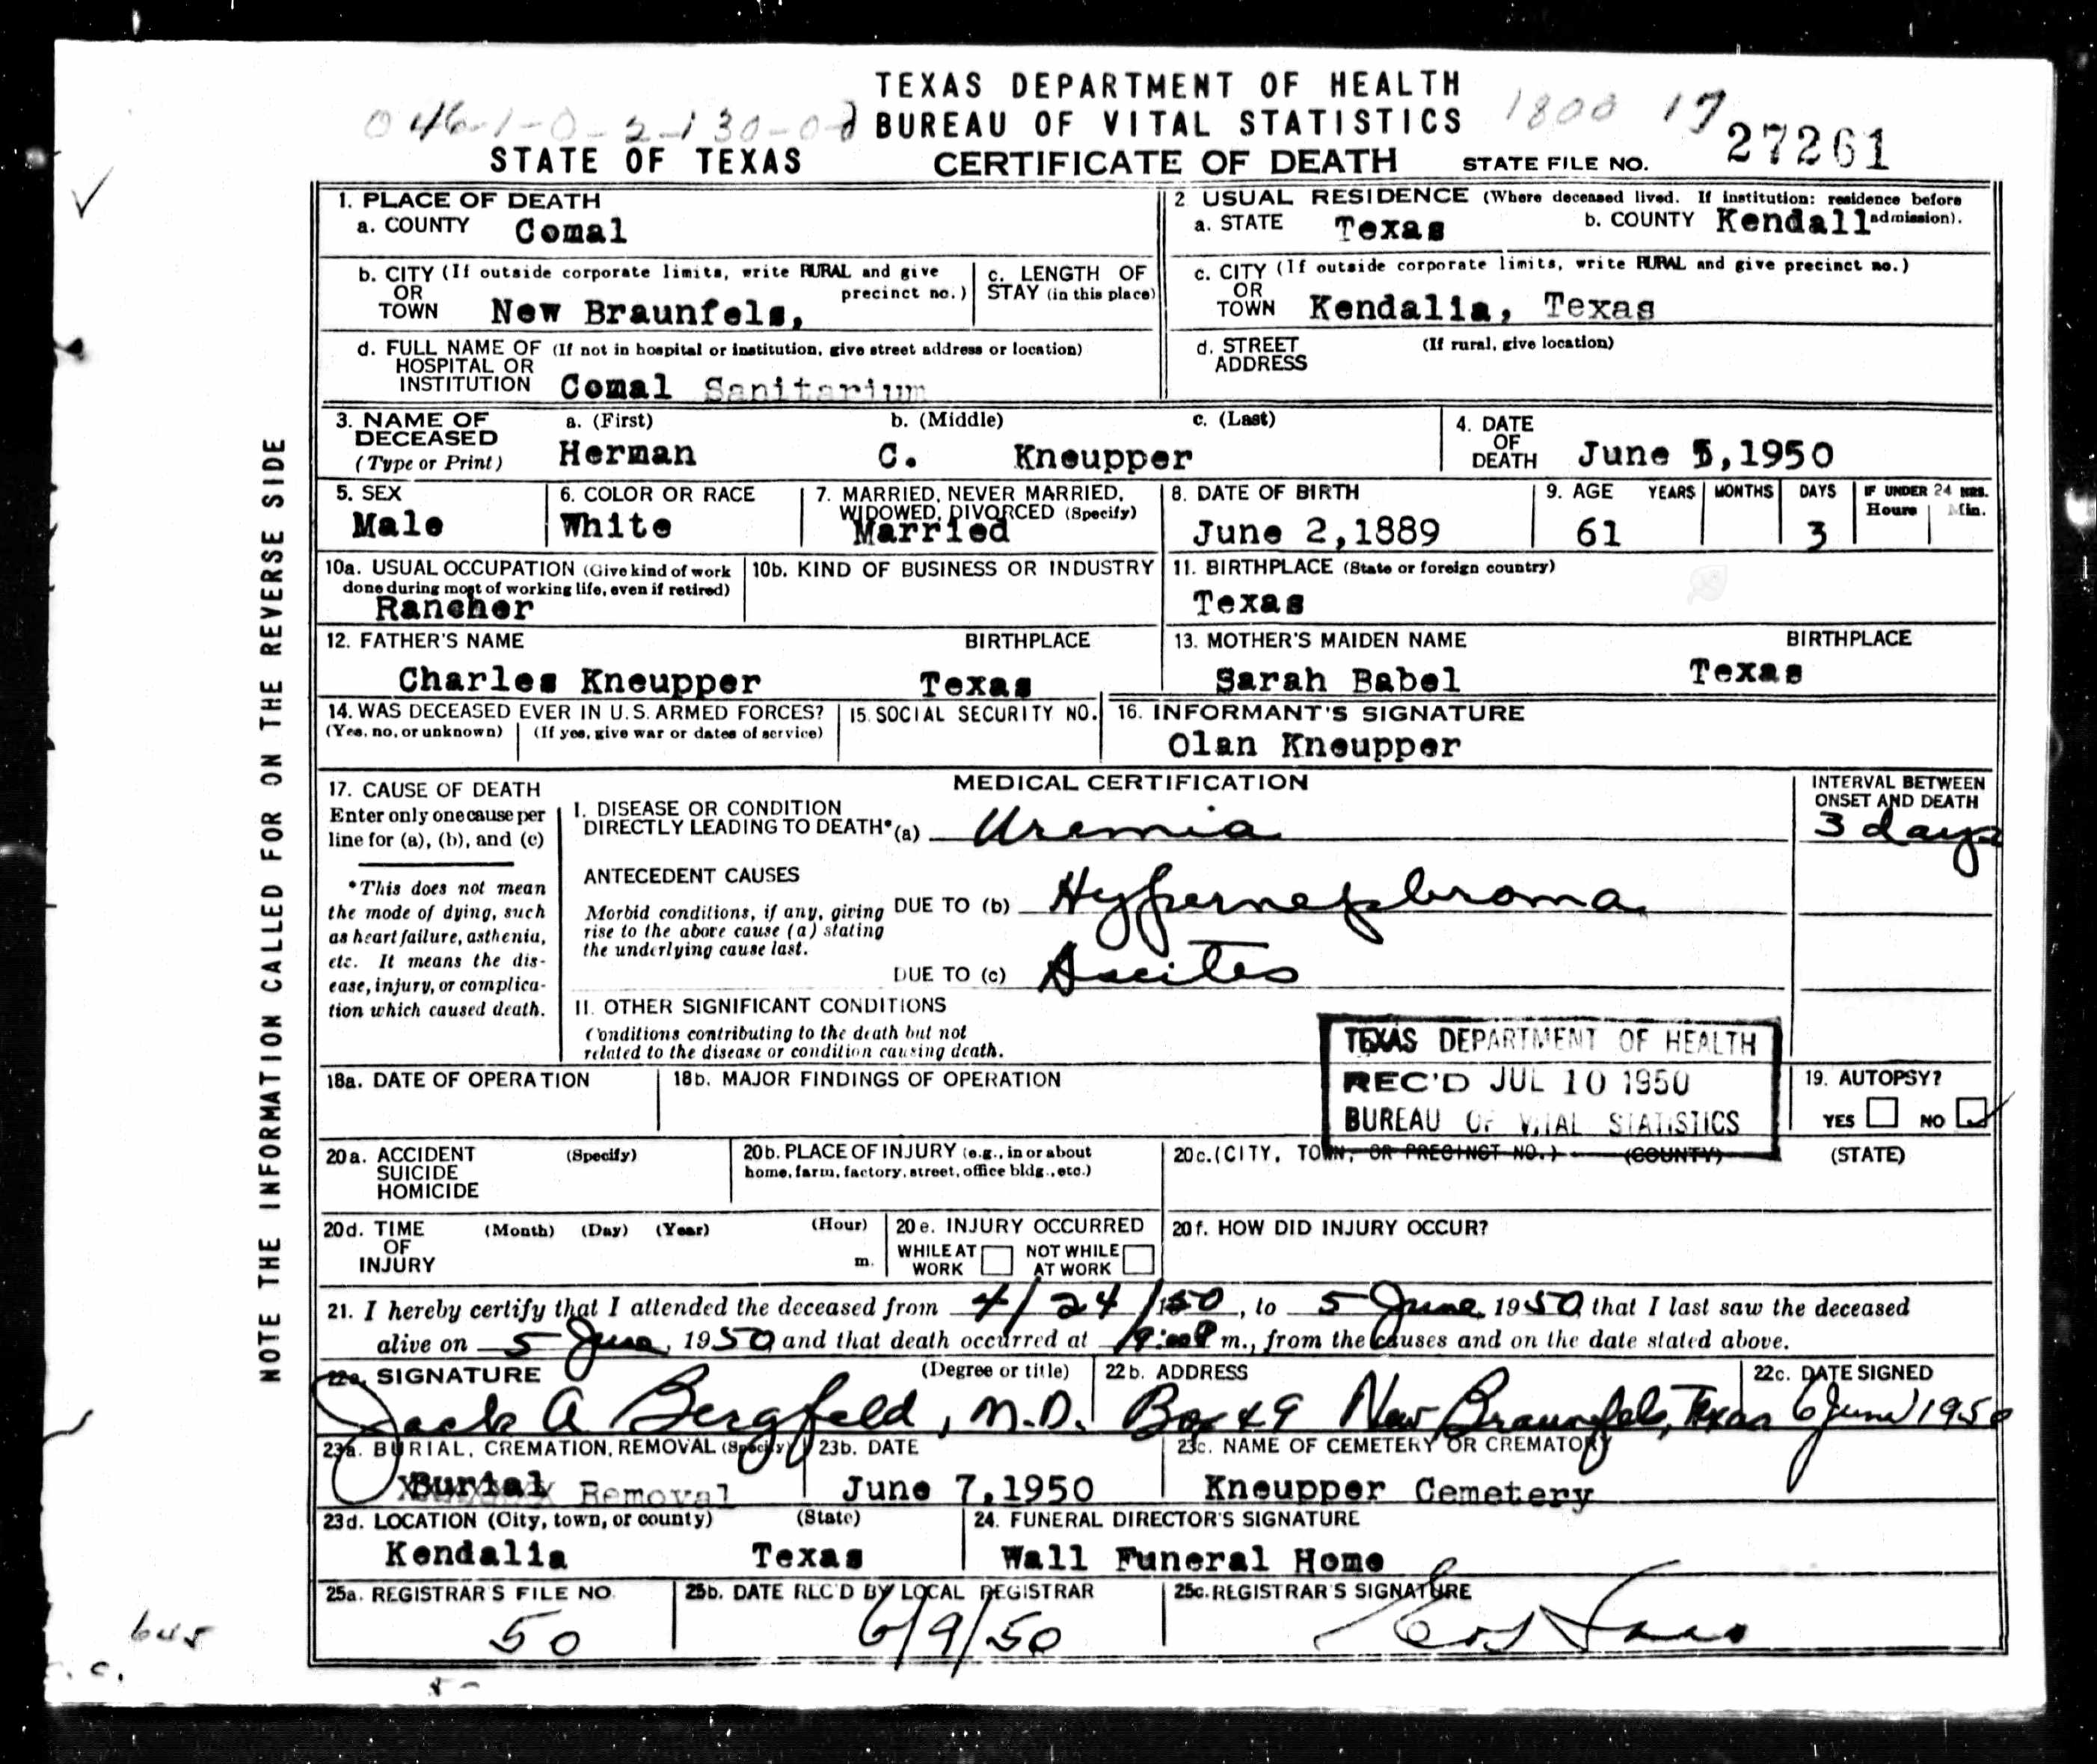 TEXAS DEPARTMENT OF HEALTH
BUREAU OF VITAL STATISTICS
1800 17
27261
STATE OF TEXAS CERTIFICATE OF DEATH STATE FILE NO.
NOTE THE INFORMATION CALLED FOR ON THE REVERSE SIDE
1. PLACE OF DEATH
a. COUNTY Comal
2 USUAL RESIDENCE (Where deceased lived. If institution: residence before admission).
a. STATE Texas b. COUNTY Kendall
b. CITY (If outside corporate limits, write RURAL and give precinct no.)
OR
TOWN New Braunfels,
c. LENGTH OF
STAY (in this place)
c. CITY (If outside corporate limits, write RURAL and give precinct no.)
OR
TOWN Kendalia, Texas
d. FULL NAME OF (If not in hospital or institution, give street address or location)
HOSPITAL OR
INSTITUTION Comal Sanitarium
d. STREET (If rural, give location)
ADDRESS
3. NAME OF DECEASED (Type or Print)
a. (First) b. (Middle) c. (Last)
Herman C. Kneupper
4. DATE OF DEATH June 5,1950
5. SEX
Male
6. COLOR OR RACE
White
7. MARRIED, NEVER MARRIED,
WIDOWED, DIVORCED (Specify)
Married
8. DATE OF BIRTH
June 2,1889
9. AGE YEARS MONTHS DAYS IF UNDER 24 HRS.
Hours Min.
61 3
10a. USUAL OCCUPATION (Give kind of work
done during most of working life, even if retired)
Rancher
10b. KIND OF BUSINESS OR INDUSTRY
11. BIRTHPLACE (State or foreign country)
Texas
12. FATHER'S NAME BIRTHPLACE
Charles Kneupper Texas
13. MOTHER'S MAIDEN NAME BIRTHPLACE
Sarah Babel Texas
14. WAS DECEASED EVER IN U.S. ARMED FORCES?
(Yes, no, or unknown) (If yes, give war or dates of service)
15. SOCIAL SECURITY NO.
16. INFORMANT'S SIGNATURE
Olan Kneupper
17. CAUSE OF DEATH
Enter only one cause per
line for (a), (b), and (c)
*This does not mean
the mode of dying, such
as heart failure, asthenia,
etc. It means the dis-
ease, injury, or complica-
tion which caused death.
MEDICAL CERTIFICATION
I. DISEASE OR CONDITION
DIRECTLY LEADING TO DEATH* (a) Uremia
INTERVAL BETWEEN
ONSET AND DEATH
3 days
ANTECEDENT CAUSES
Morbid conditions, if any, giving
rise to the above cause (a) stating
the underlying cause last.
DUE TO (b) Hypernephroma
DUE TO (c) Ascites
II. OTHER SIGNIFICANT CONDITIONS
Conditions contributing to the death but not
related to the disease or condition causing death.
TEXAS DEPARTMENT OF HEALTH
REC'D JUL 10 1950
BUREAU OF VITAL STATISTICS
18a. DATE OF OPERATION
18b. MAJOR FINDINGS OF OPERATION
19. AUTOPSY?
YES NO
20a. ACCIDENT (Specify)
SUICIDE
HOMICIDE
20b. PLACE OF INJURY (e.g., in or about
home, farm, factory, street, office bldg., etc.)
20c. (CITY, TOWN, OR PRECINCT NO.) (COUNTY) (STATE)
20d. TIME (Month) (Day) (Year) (Hour)
OF
INJURY m.
20e. INJURY OCCURRED
WHILE AT WORK NOT WHILE AT WORK
20f. HOW DID INJURY OCCUR?
21. I hereby certify that I attended the deceased from 4/24/1950, to 5 June, 1950 that I last saw the deceased
alive on 5 June, 1950 and that death occurred at 9:00P m., from the causes and on the date stated above.
22a. SIGNATURE (Degree or title)
Jack A Bergfeld, M.D.
22b. ADDRESS
Box 49 New Braunfels, Texas
22c. DATE SIGNED
6 June 1950
23a. BURIAL, CREMATION, REMOVAL (Specify)
Burial Removal
23b. DATE
June 7,1950
23c. NAME OF CEMETERY OR CREMATORY
Kneupper Cemetery
23d. LOCATION (City, town, or county) (State)
Kendalia Texas
24. FUNERAL DIRECTOR'S SIGNATURE
Wall Funeral Home
25a. REGISTRAR'S FILE NO.
50
25b. DATE REC'D BY LOCAL REGISTRAR
6/9/50
25c. REGISTRAR'S SIGNATURE